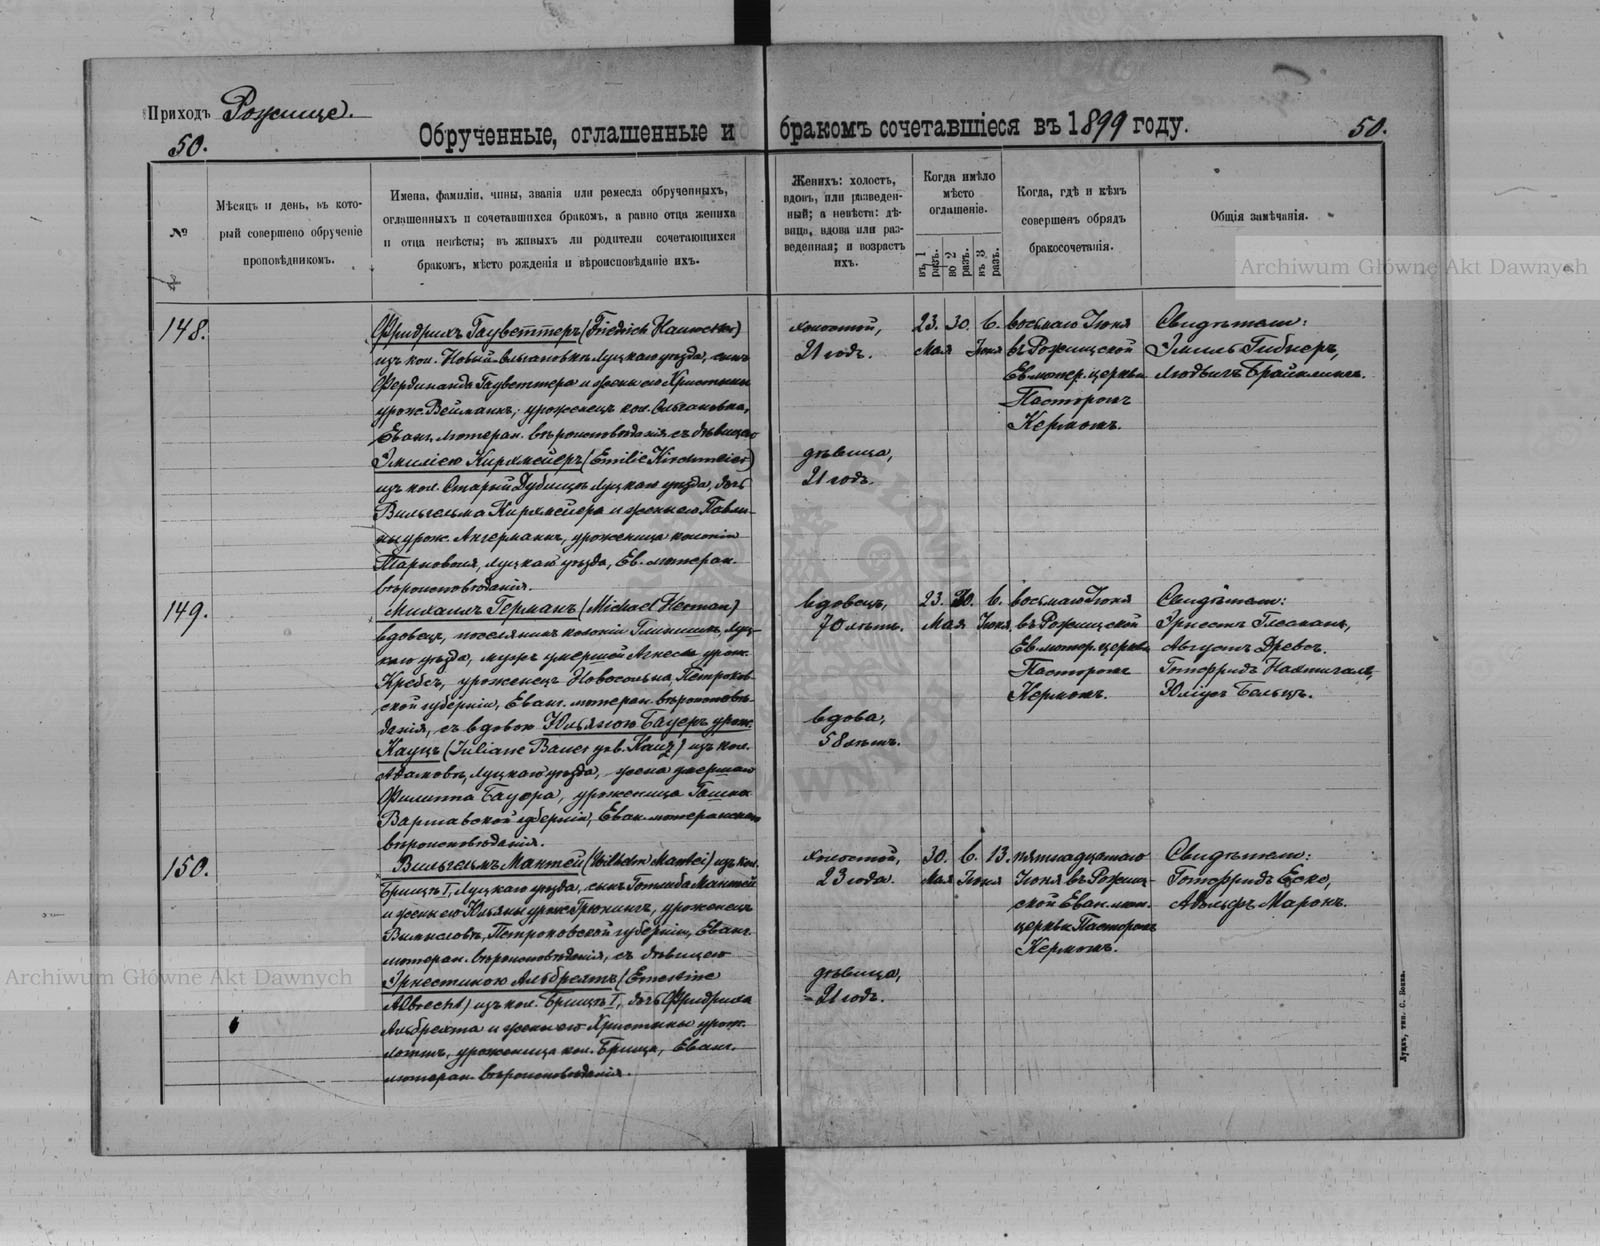 Приходъ Рожище.
50.
Обрученные, оглашенные и бракомъ сочетавшіеся въ 1899 году.
50.
№
Мѣсяцъ и день, въ кото-
рый совершено обрученіе
проповѣдникомъ.
Имена, фамиліи, чины, званія или ремесла обрученныхъ,
оглашенныхъ и сочетавшихся бракомъ, а равно отца жениха
и отца невѣсты; въ живыхъ ли родители сочетающихся
бракомъ, мѣсто рожденія и вѣроисповѣданіе ихъ.
Женихъ: холостъ,
вдовъ, или разведен-
ный; а невѣста: дѣ-
вица, вдова или раз-
веденная; и возрастъ
ихъ.
Когда имѣло
мѣсто
оглашеніе.
въ 1 разъ.
во 2 разъ.
въ 3 разъ.
Когда, гдѣ и кѣмъ
совершенъ обрядъ
бракосочетанія.
Общія замѣчанія.
Archiwum Główne Akt Dawnych
148.
Фридрихъ Гауветтеръ (Friedrich Hauwetter)
изъ кол. Новый-Ольгановка Луцкаго уѣзда, сынъ
Фердинанда Гауветтера и жены его Христины
урож. Вейманъ, уроженецъ кол. Ольгановка,
Еванг. лютеран. вѣроисповѣданія съ дѣвицею
Эмиліею Кирхмейеръ (Emilie Kirchmeier)
изъ кол. Старый Дубищъ Луцкаго уѣзда, дочь
Вильгельма Кирхмейера и жены его Павли-
ны урож. Ангерманъ, уроженица колоніи
Марковая, Луцкаго уѣзда, Ев. лютеран.
вѣроисповѣданія.
холостой,
21 годъ.
дѣвица,
21 годъ.
23. 30. 6.
Мая Іюня
восьмаго Іюня
въ Рожищской
Ев. лютер. церкви
Пасторомъ
Кермомъ.
Свидѣтели:
Эмиль Гибнеръ,
Людвигъ Брайлингъ.
149.
Михаилъ Германъ (Michael Herman)
вдовецъ, поселянинъ колоніи Глинищъ, Луц-
каго уѣзда, мужъ умершей Агнесы урож.
Кребсъ, уроженецъ Новосольна, Петроков-
ской губерніи, Еванг. лютеран. вѣроисповѣ-
данія, съ вдовою Юльяною Бауеръ урож.
Кауцъ (Juliane Bauer geb. Kauz) изъ кол.
Адамовъ, Луцкаго уѣзда, жена умершаго
Филиппа Бауера, уроженица
Варшавской губерніи, Еван. лютеранскаго
вѣроисповѣданія.
вдовецъ,
70 лѣтъ.
вдова,
58 лѣтъ.
23. 30. 6.
Мая Іюня
восьмаго Іюня
въ Рожищской
Ев. лютер. церкви
Пасторомъ
Кермомъ.
Свидѣтели:
Эрнестъ Глесманъ,
Августъ Древсъ.
Готфридъ Нахтигаль,
Юліусъ Бальцъ.
150.
Вильгельмъ Мантей (Wilhelm Mantei) изъ кол.
Брищъ I, Луцкаго уѣзда, сынъ Готлиба Мантей
и жены его Юльяны урож. Грюнингъ, уроженецъ
Вымысловъ, Петроковской губерніи, Еванг.
лютеран. вѣроисповѣданія, съ дѣвицею
Эрнестиною Альбрехтъ (Ernestine
Albrecht) изъ кол. Брищъ I, дочь Фридриха
Альбрехта и жены его Христины урож.
уроженица кол. Брища, Еванг.
лютеран. вѣроисповѣданія.
холостой,
23 года.
дѣвица,
21 годъ.
30. 6. 13.
Мая Іюня
пятнадцатаго
Іюня въ Рожищ-
ской Еван. лют.
церкви Пасторомъ
Кермомъ.
Свидѣтели:
Готфридъ Еске,
Адольфъ Марокъ.
Archiwum Główne Akt Dawnych
Луцкъ, тип. С. Бокля.